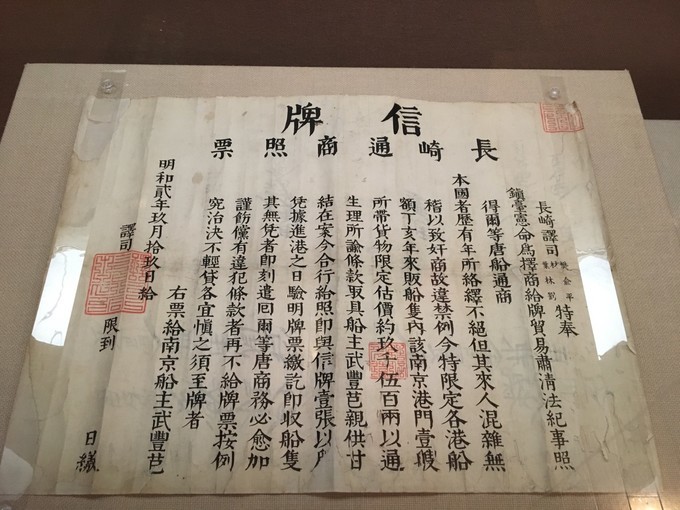 信牌
長崎通商照票
長崎譯司 特奉
鎮臺憲命為擇商給牌貿易肅清法紀事照
得爾等唐船通商
本國者歷有年所絡繹不絕但其來人混雜無
稽以致奸商故違禁例今特限定各港船
額丁亥年來販船隻內該南京港門壹艘
所帶貨物限定估價約玖千伍百兩以通
生理所諭條款取具船主武豐芑親供甘
結在案今合行給照即與信牌壹張以為
凭據進港之日驗明牌票繳訖即收船隻
其無凭者即刻遣回爾等唐商務必愈加
謹飭儻有違犯條款者再不給牌票按例
究治決不輕貸各宜慎之須至牌者
右票給南京船主武豐芑
明和貳年玖月拾玖日給
譯司
限到 日繳